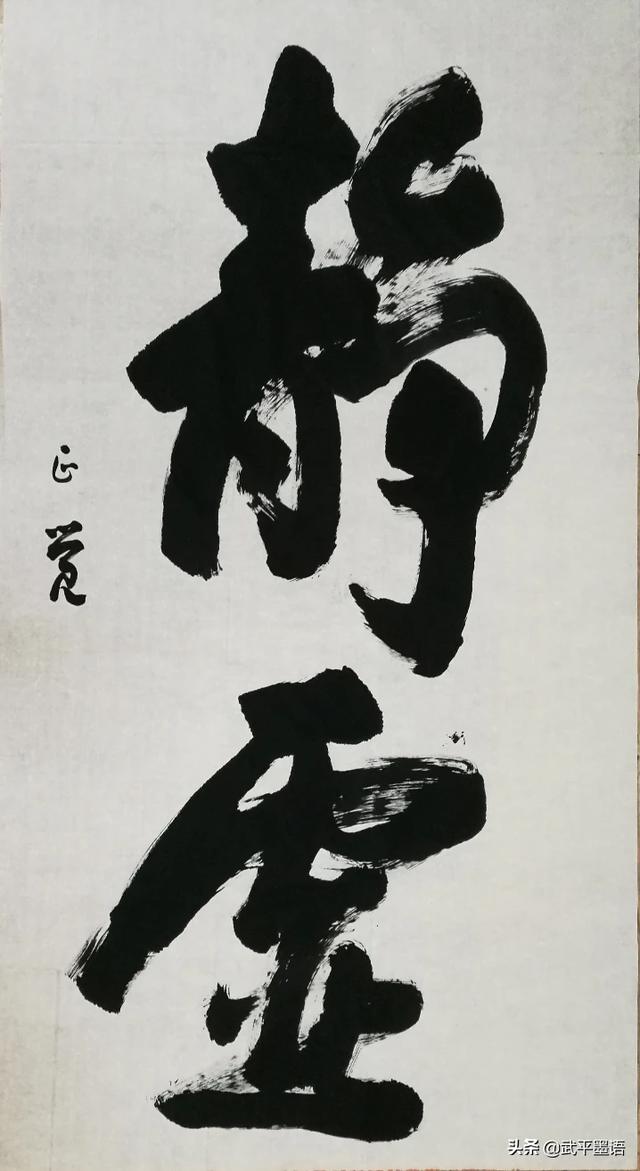 静虚
正觉
头条 @武平墨语